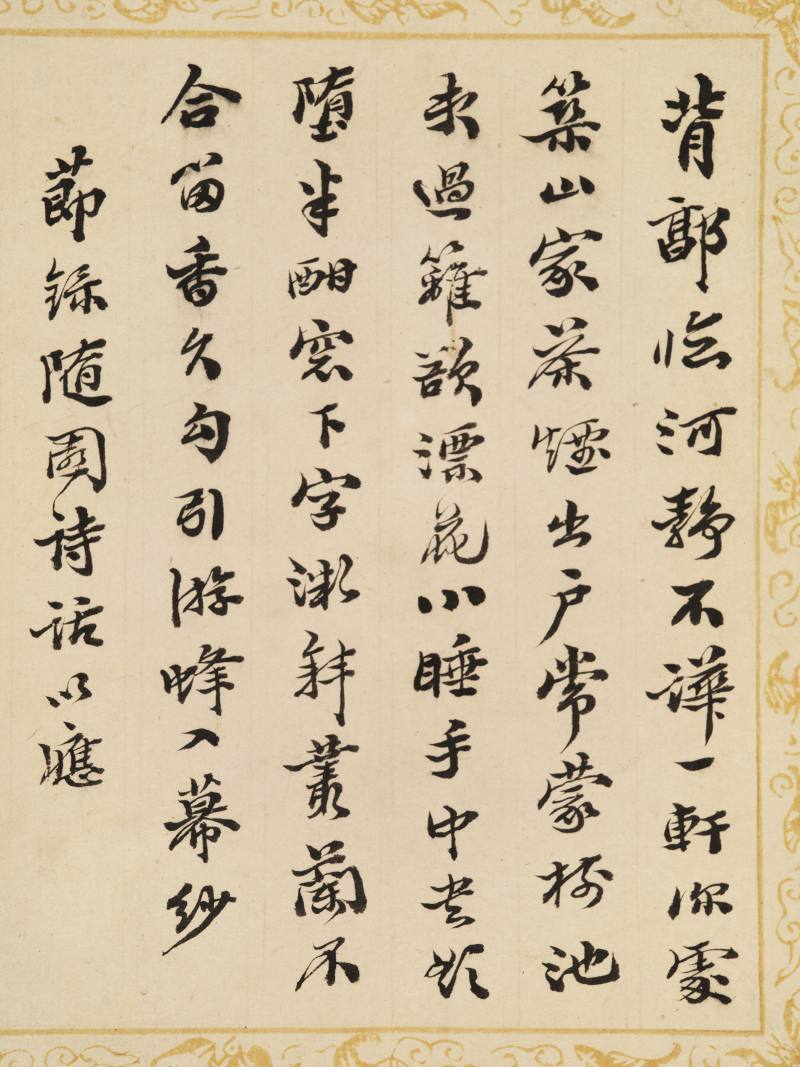 背郭臨河靜不譁一軒深處
築山家茶煙出戶常蒙樹池
水過籬欲漂花小睡手中書
墮半酣窗下字漸斜叢蘭不
合留香久勾引游蜂入幕紗
節錄隨園詩話以應